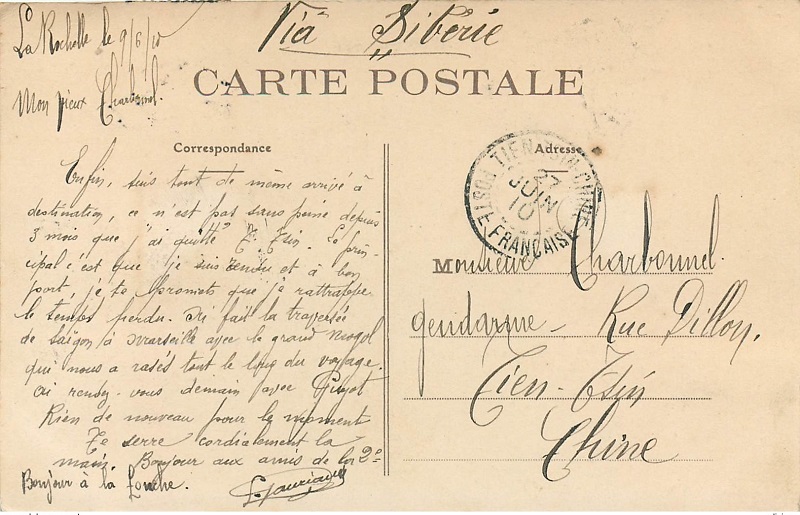 La Rochelle le 9/6/10
Via Sibérie
CARTE POSTALE
Mon vieux Charbonnel.
Correspondance
Enfin, suis tout de même arrivé à
destination, ce n'est pas sans peine depuis
3 mois que j'ai quitté T. Tsin. Le prin-
cipal c'est que je suis rendu et à bon
port, je te promets que je rattrappe
le temps perdu. Ai fait la traversée
de Saïgon à Marseille avec le grand mogol
qui nous a rasés tout le long du voyage.
ai rendez-vous demain avec Guyot
Rien de nouveau pour le moment
Te serre cordialement la
main. Bonjour aux amis de la 2e
Bonjour à la
Adresse
TIEN-TSIN-CHINE
27
JUIN
10
POSTE FRANÇAISE
Monsieur Charbonnel.
gendarme - Rue Dillon,
Tien-Tsin
Chine